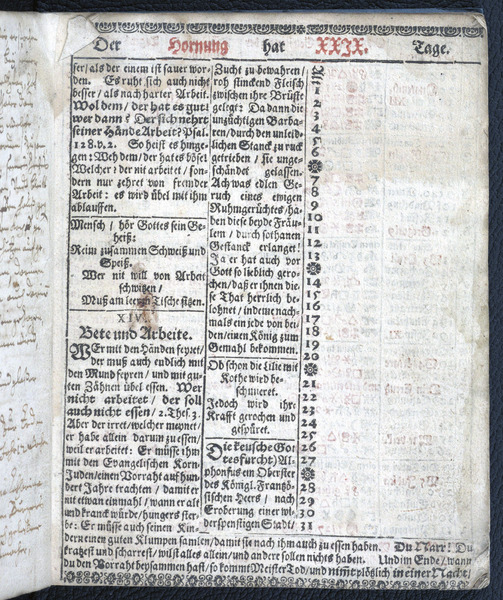 Der Hornung hat XXIX. Tage.
ser/ als der einem ist sauer wor-
den. Es ruht sich auch nicht
besser/ als nach harter Arbeit.
Wol dem/ der hat es gut!
wer dann? Der sich nehrt
seiner Hände Arbeit? Psal.
128. v. 2. So heist es hinge-
gen: Weh dem/ der hat es böse!
Welcher? der nit arbeitet/ son-
dern nur zehret von fremder
Arbeit: es wird übel mit ihm
ablauffen.
Mensch/ hör Gottes sein Ge-
heiß:
Reim zusammen Schweiß und
Speiß.
Wer nit will von Arbeit
schwitzen/
Muß am leeren Tische sitzen.
XIV
Bete und Arbeite.
WEr mit den Händen feyret/
der muß auch endlich mit
den Mund feyren/ und mit gu-
ten Zähnen übel essen. Wer
nicht arbeitet/ der soll
auch nicht essen/ 2. Thes. 3.
Aber der irret/ welcher meynet/
er habe allein darum zu essen/
weil er arbeitet: Er müsse ihm
mit den Evangelischen Korn-
Juden/ einen Vorraht auf hun-
dert Jahre trachten/ damit er
nit etwan einmahl/ wann er alt
und kranck würde/ hungers ster-
be: Er müsse auch seinen Kin-
Zucht zu bewahren/
roh stinckend Fleisch
zwischen ihre Brüste
gelegt: Da dann die
unzüchtigen Barba-
ren/ durch den unleid-
lichen Stanck zu ruck
getrieben/ sie unge-
schändet gelassen.
Ach was edlen Ge-
ruch eines ewigen
Ruhmgerüchtes/ ha-
ben diese beyde Fräu-
lein/ durch sothanen
Gestanck erlanget!
Ja er hat auch vor
Gott so lieblich gero-
chen/ daß er ihnen die-
se That herrlich be-
lohnet/ indeme nach-
mals ein jede von bei-
den/ einen König zum
Gemahl bekommen.
Ob schon die Lilie mit
Kothe wird be-
schmieret.
Jedoch wird ihr
Krafft gerochen und
gespüret.
Die keusche Got-
tesfurcht) Al-
phonsus ein Oberster
des Königl. Frantzö-
sischen Heers/ nach
Eroberung einer wi-
derspenstigen Stadt/
1
2
3
4
5
6
7
8
9
10
11
12
13
14
15
16
17
18
19
20
21
22
23
24
25
26
27
28
29
30
31
dern einen guten Klumpen samlen/ damit sie nach ihm auch zu essen haben. Du Narr! Du
kratzest und scharrest/ wilst alles allein/ und andere sollen nichts haben. Und im Ende/ wann
du den Vorraht beysammen hast/ so kommt Meister Tod/ und nimt plötzlich in einer Nacht/